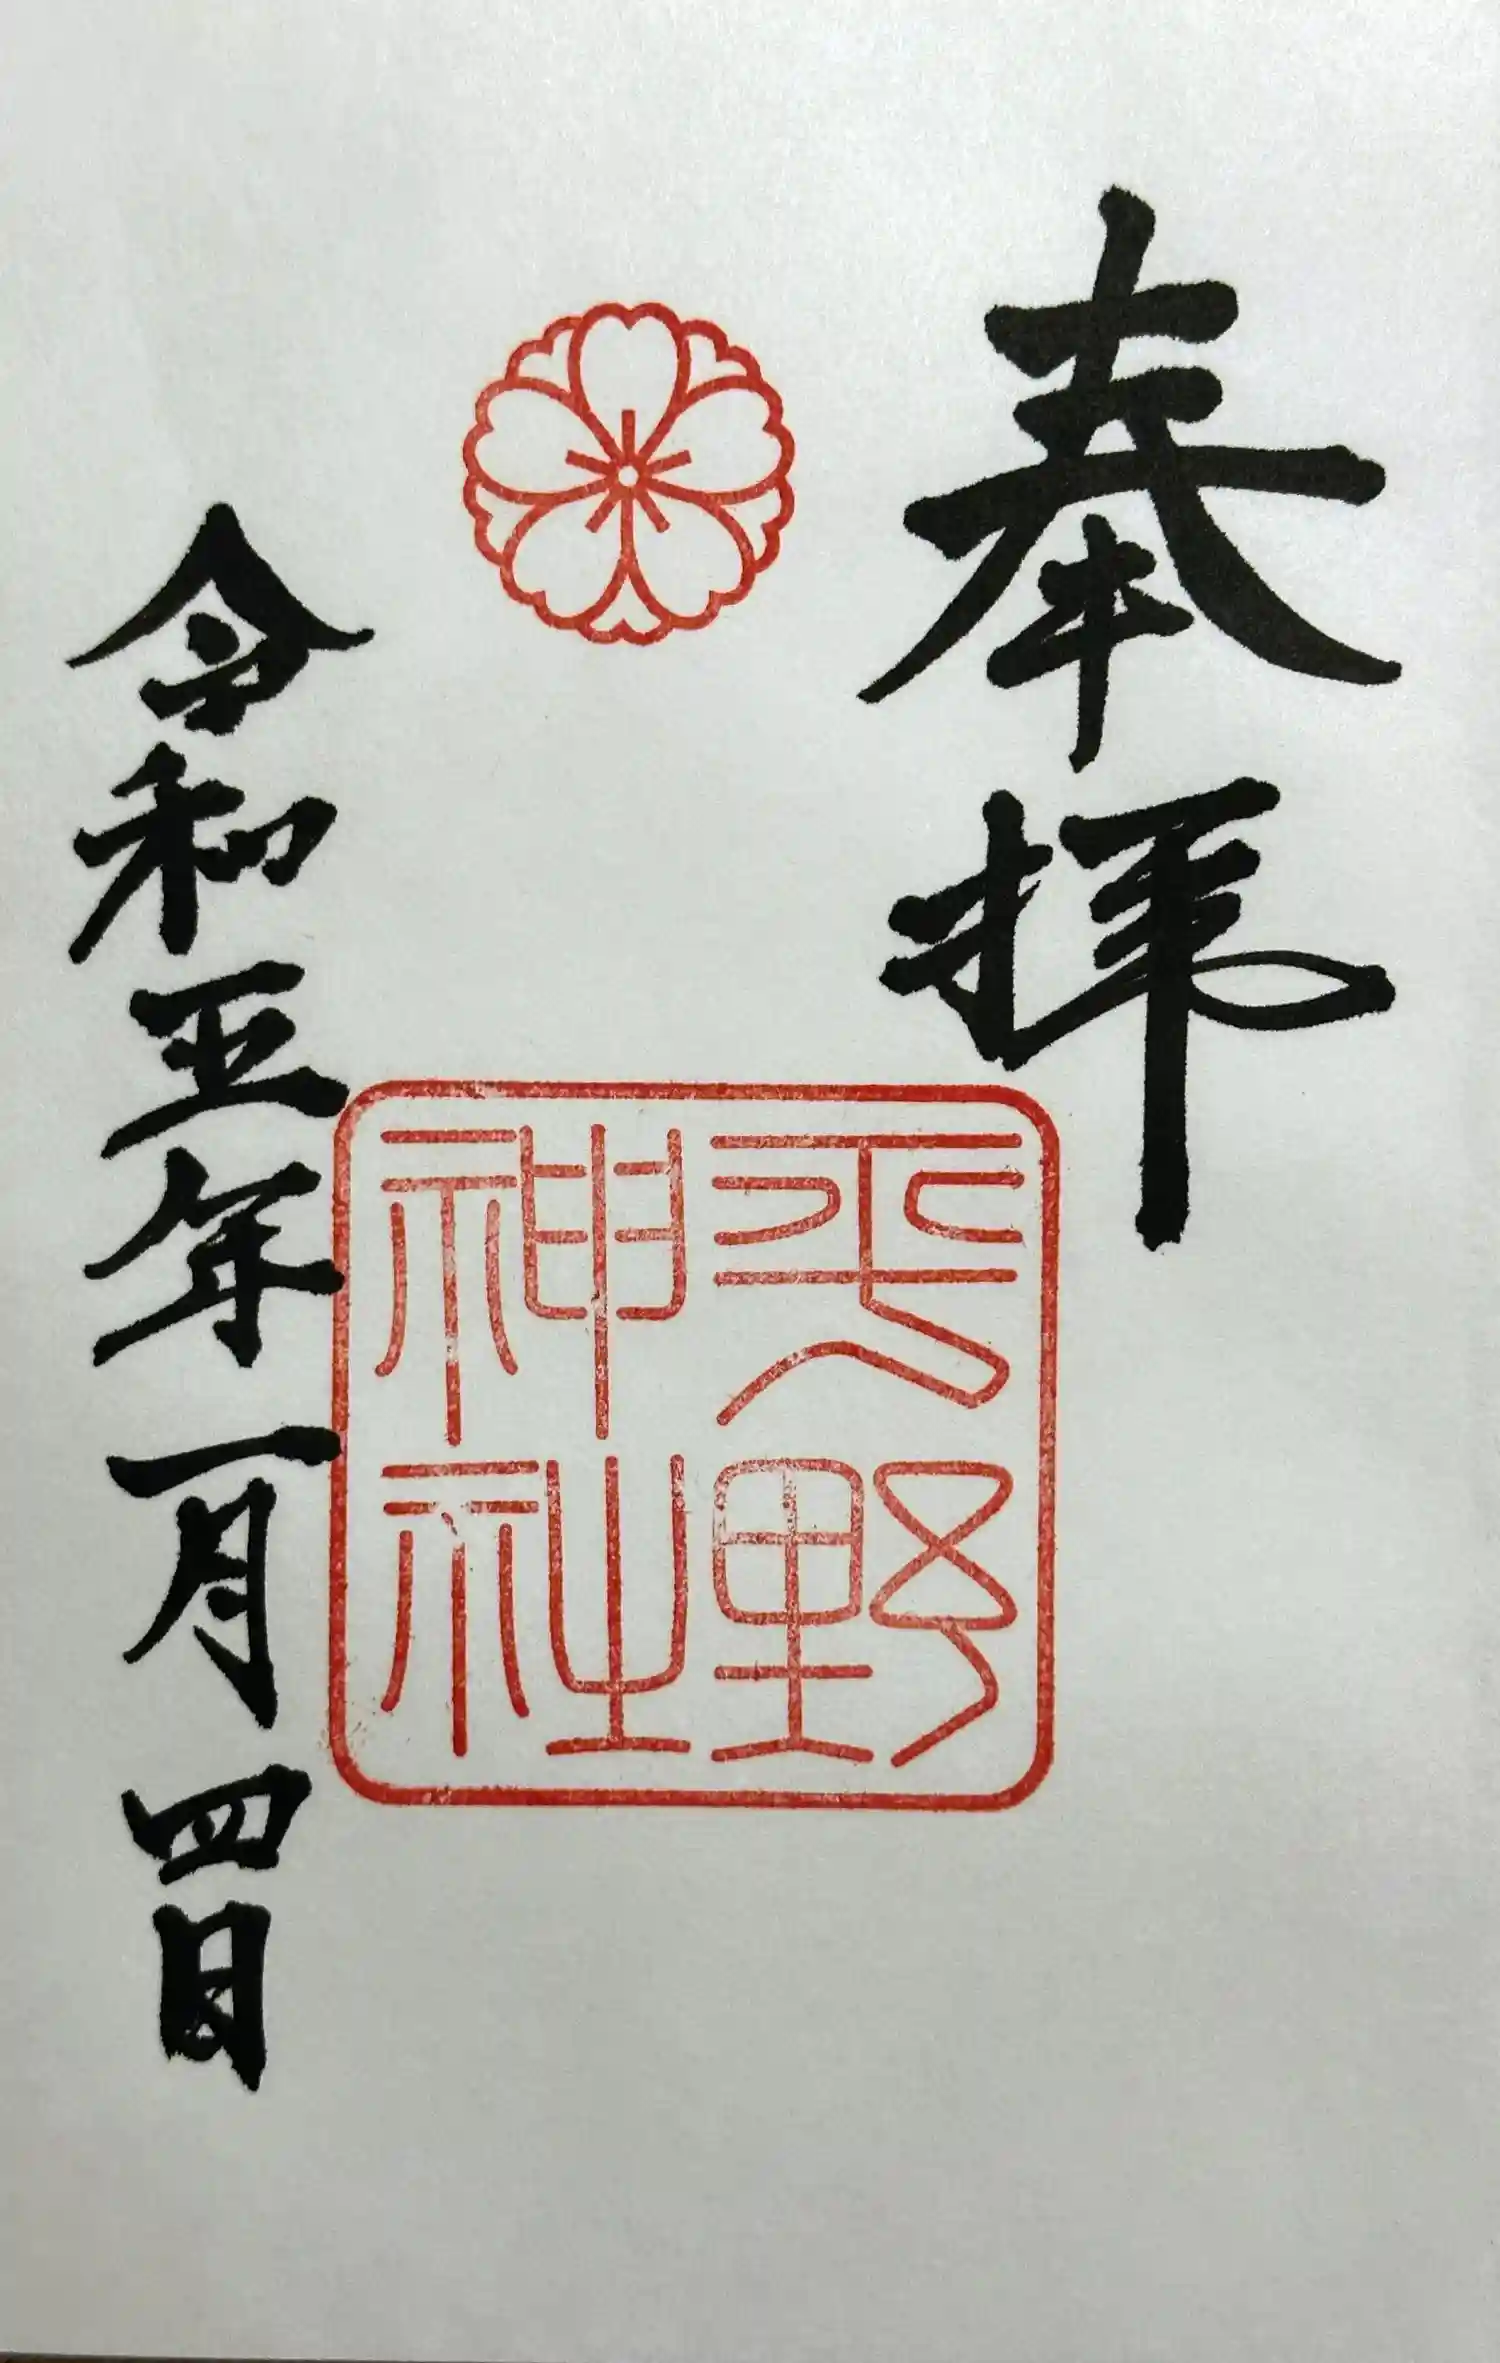 奉拝
平野神社
令和五年一月四日